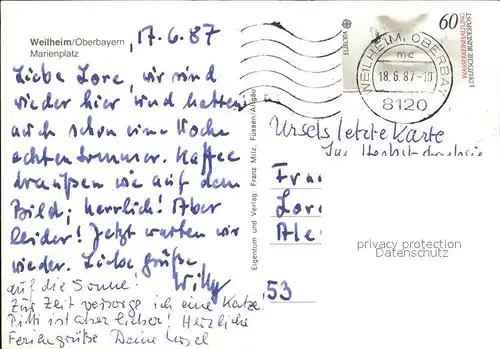 Weilheim/Oberbayern
Marienplatz
17.6.87
Liebe Lore, wir sind
wieder hier und hatten
auch schon eine Woche
echten Sommer. Kaffee
draußen wie auf dem
Bild, herrlich! Aber
leider! Jetzt warten wir
wieder. Liebe Grüße
auf die Sonne! Willy
Zur Zeit versorge ich eine Katze.
Pitti ist aber lieber! Herzliche
Feriengrüße Deine Ursel
Eigentum und Verlag: Franz Milz, Füssen/Allgäu
EUROPA
60
WASSERREINHALTUNG
DEUTSCHE BUNDESPOST
WEILHEIM, OBERBAY
mc
18.6.87-10
8120
Ursels letzte Karte
Frau
Lor
Ale
53
privacy protection
Datenschutz